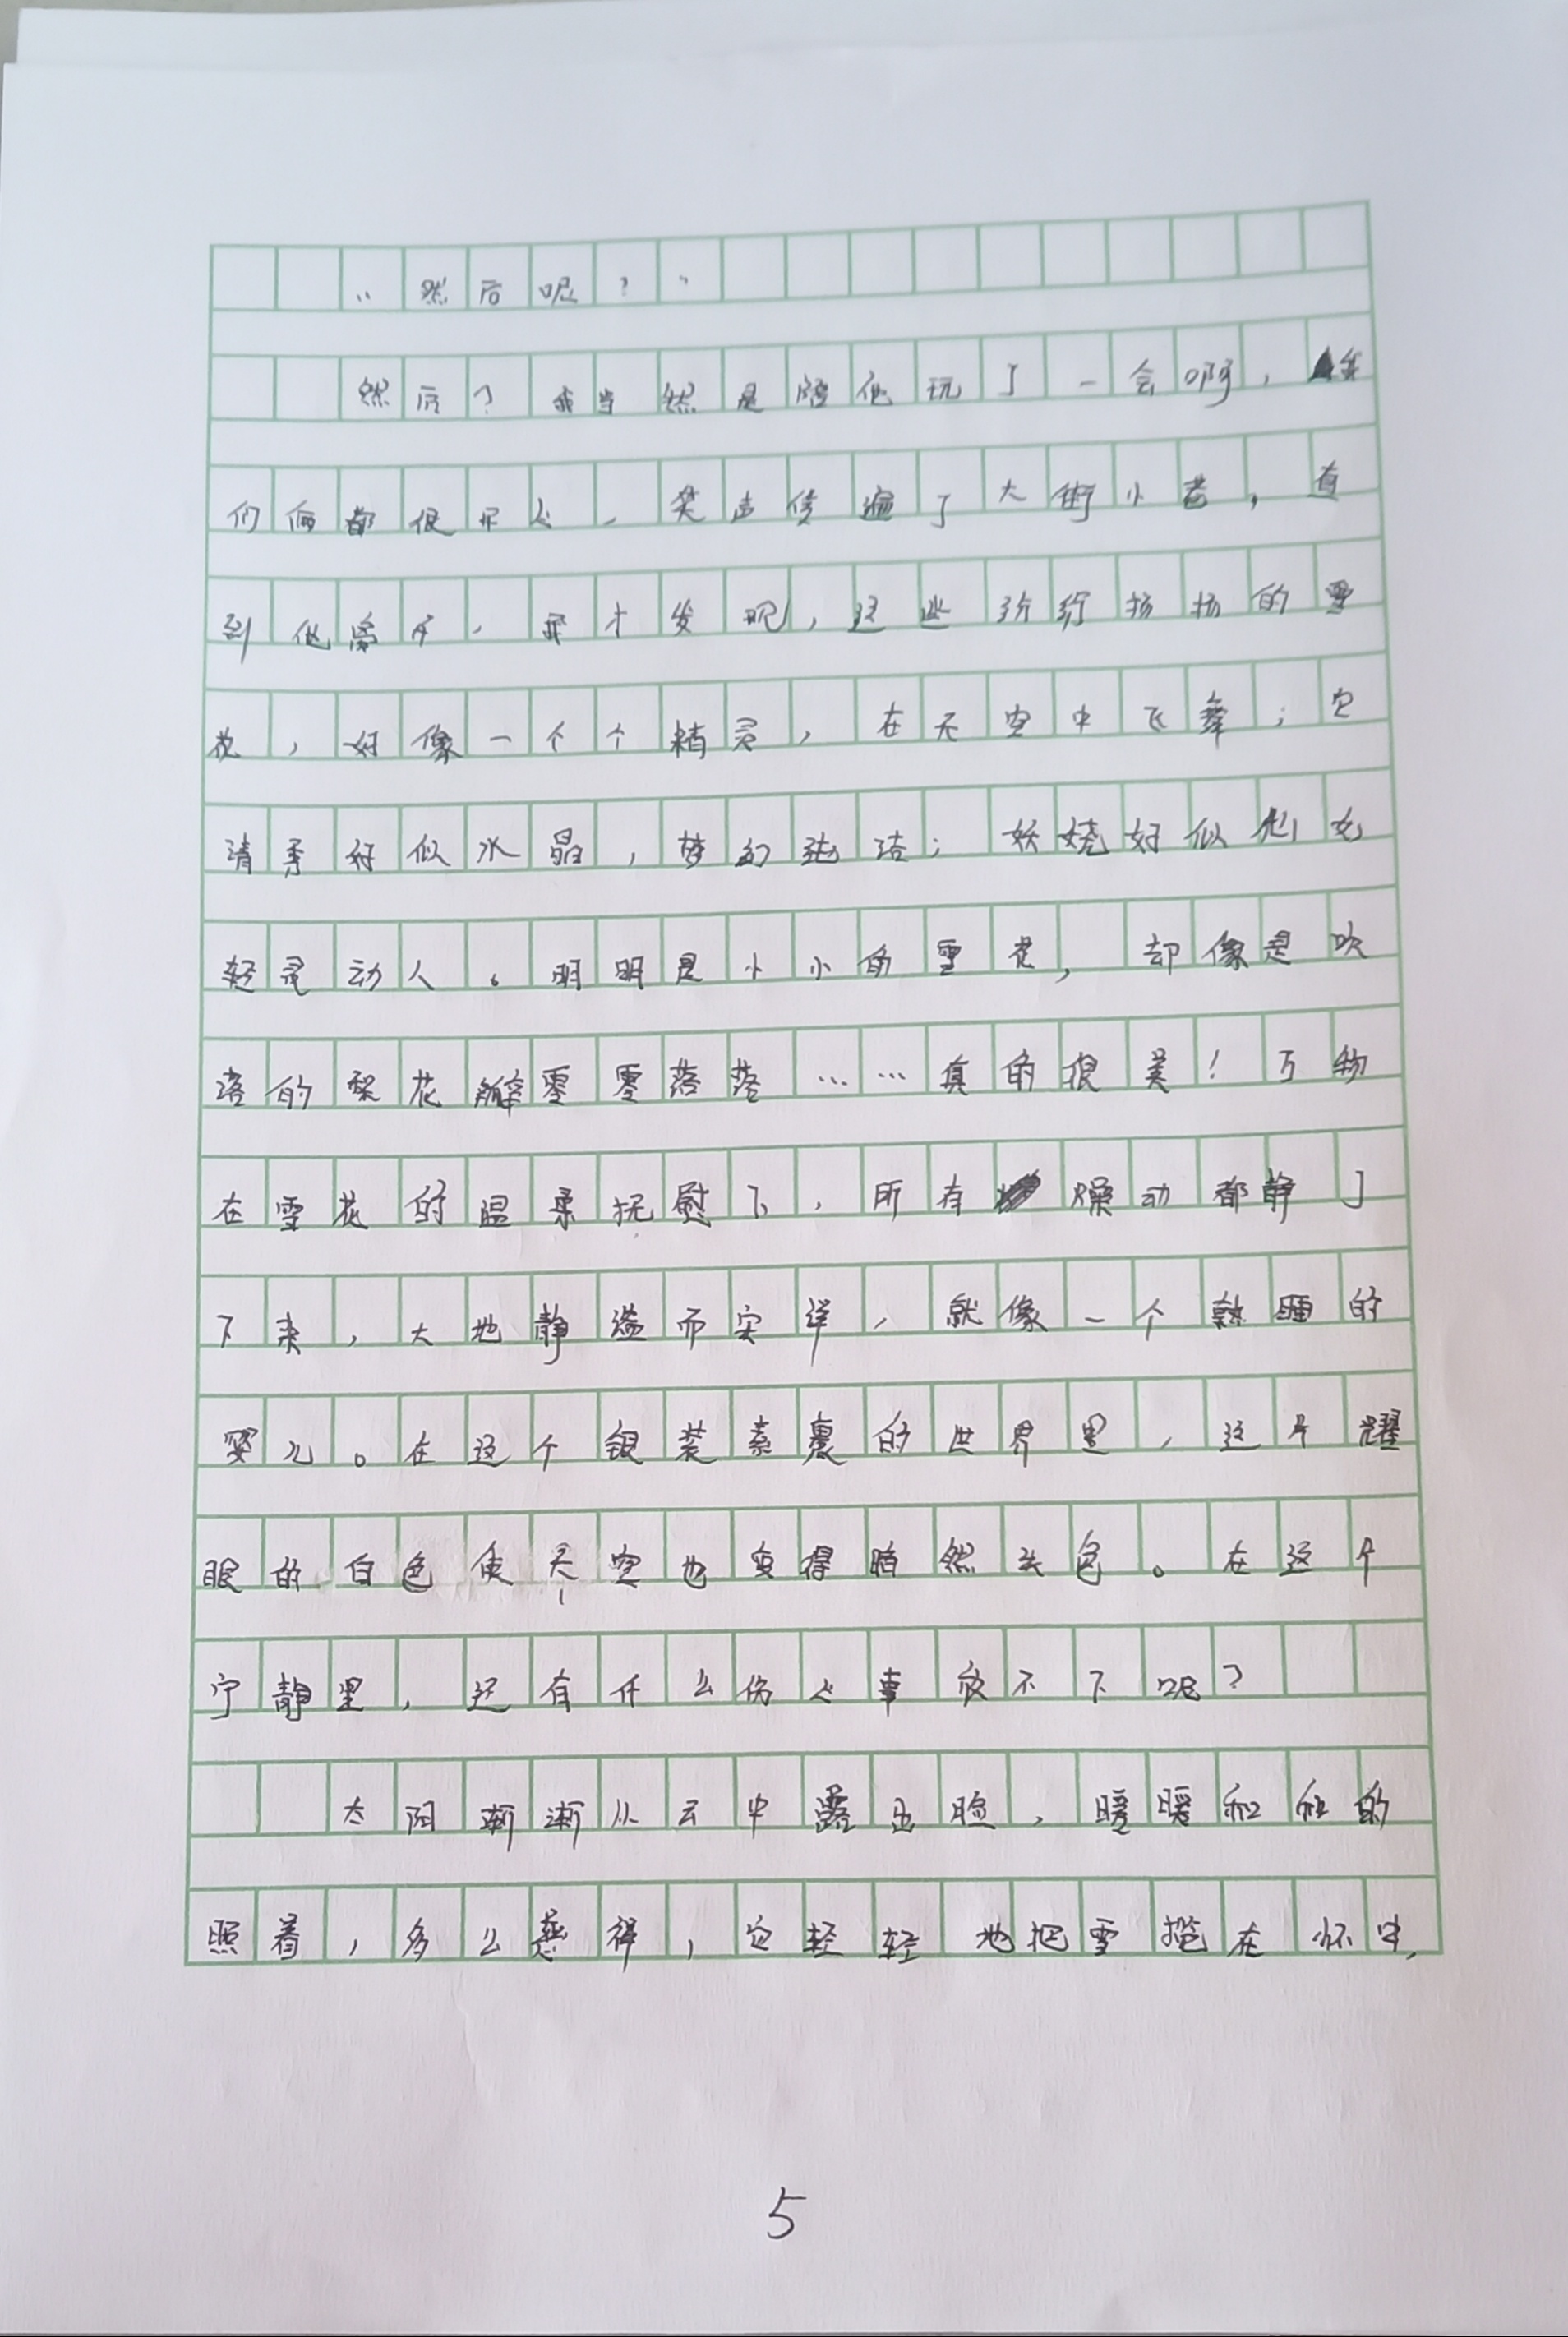 “然后呢？”
然后？我当然是陪他玩了一会啊，我
们俩都很开心，笑声传遍了大街小巷，直
到他离开，我才发现，这些纷纷扬扬的雪
花，好像一个个精灵，在天空中飞舞；它
清柔好似水晶，梦幻纯洁；妖娆好似仙女
轻灵动人。明明是小小的雪花，却像是吹
落的梨花瓣零零落落……真的很美！万物
在雪花的温柔抚慰下，所有燥动都静了
下来，大地静谧而安详，就像一个熟睡的
婴儿。在这个银装素裹的世界里，这片耀
眼的白色使天空也变得暗然失色。在这个
宁静里，还有什么伤心事放不下呢？
太阳渐渐从云中露出脸，暖暖和和的
照着，多么慈祥，它轻轻地把雪揽在怀中，
5